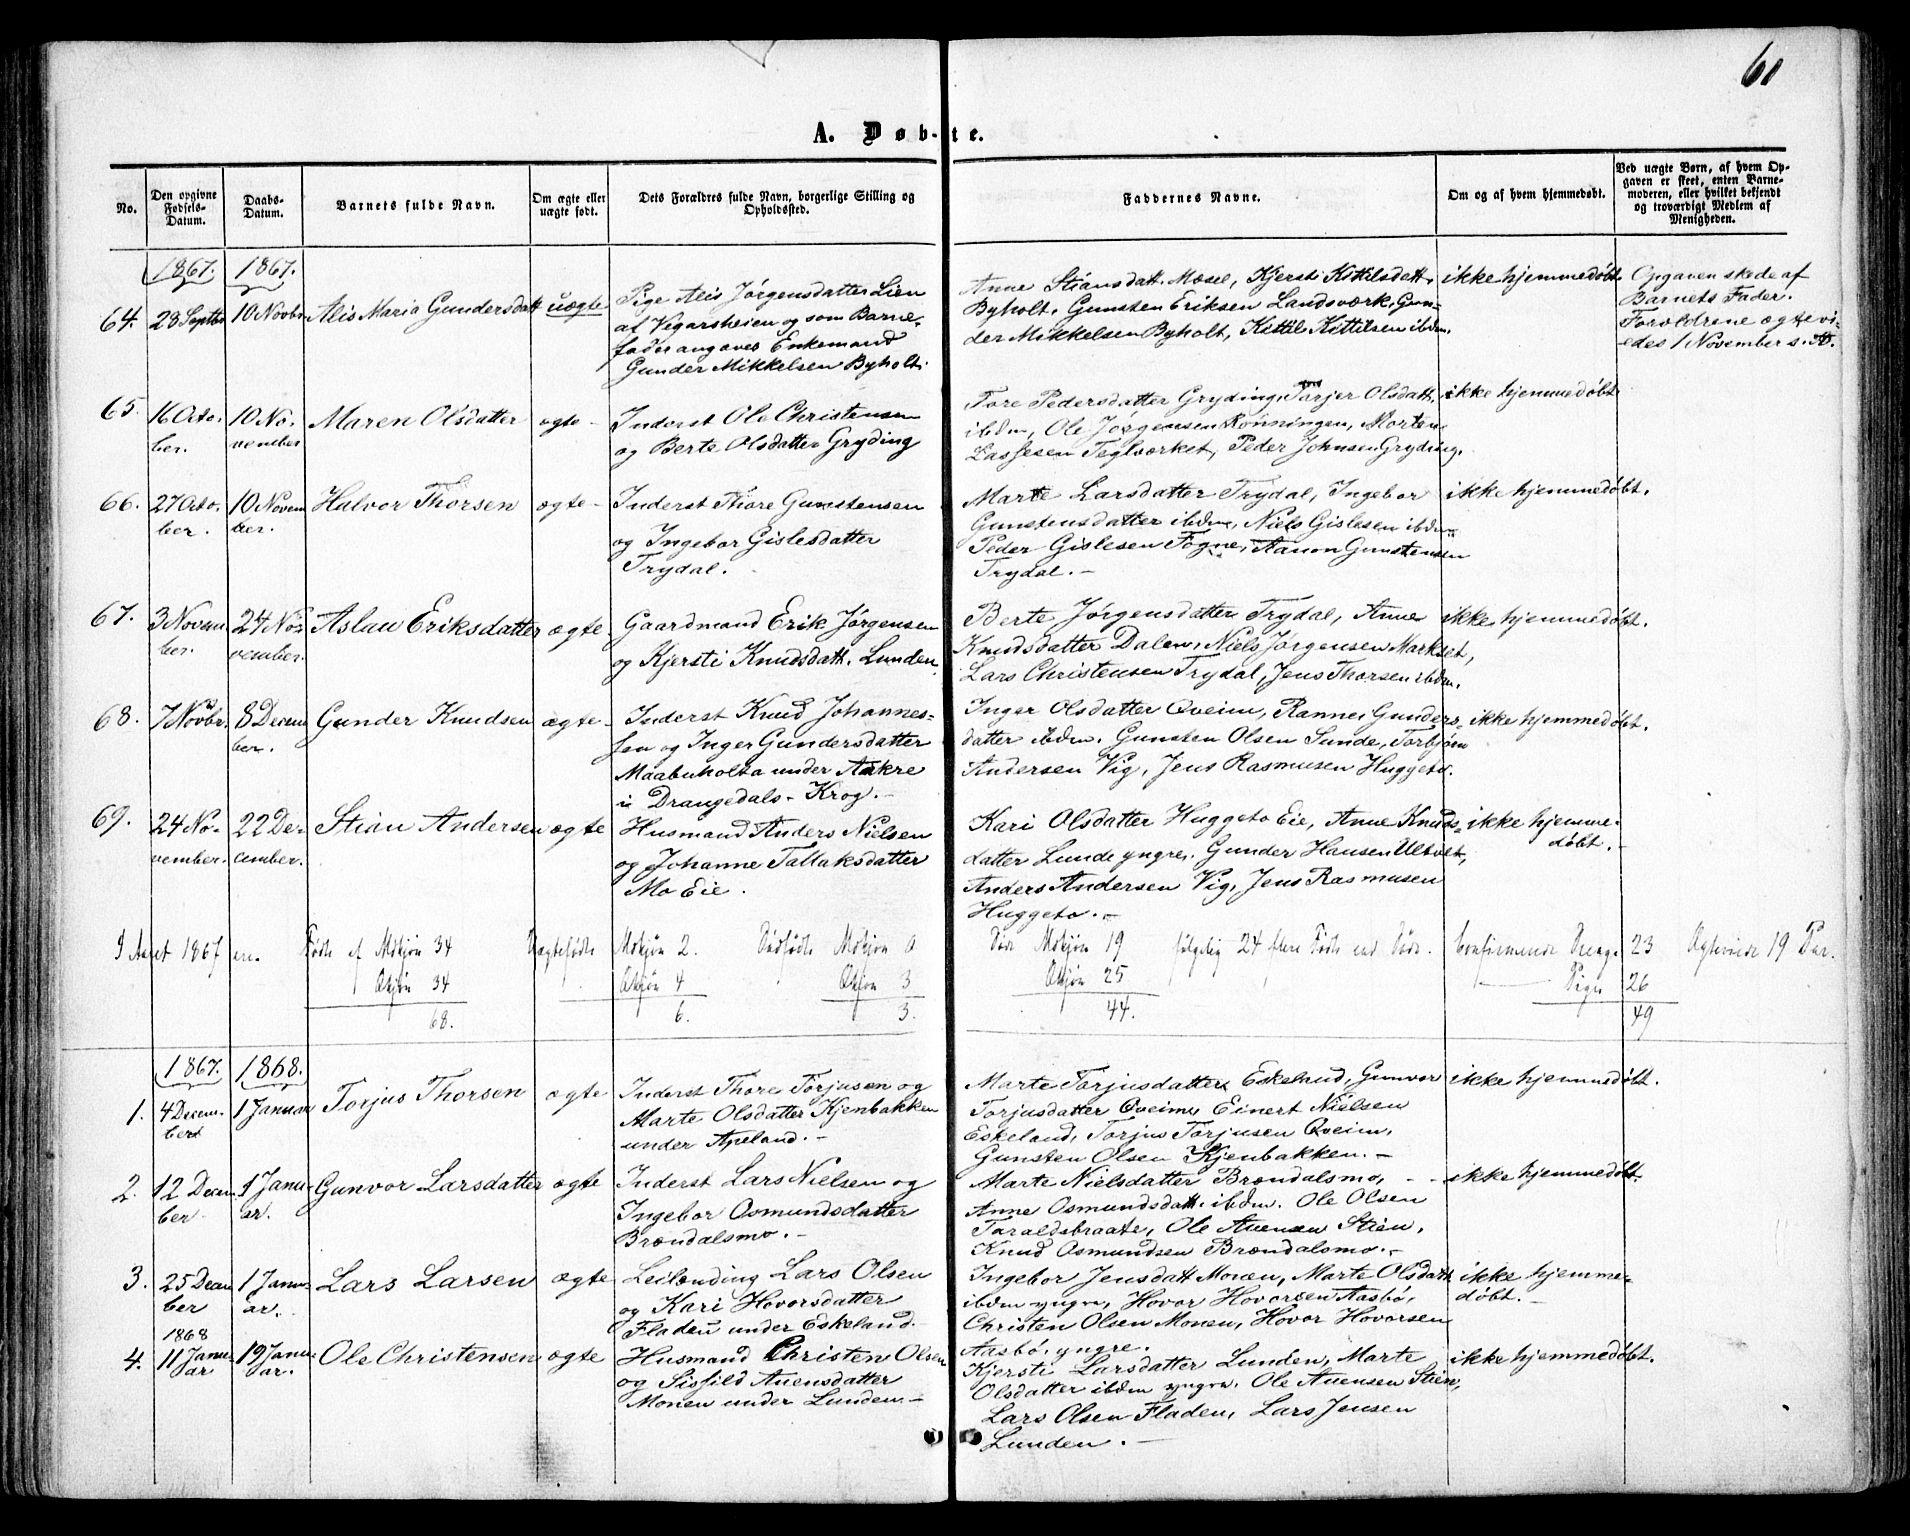 60
A. Døbte.
No.
Den opgivne Fødsels-Datum.
Daabs-Datum.
Barnets fulde Navn.
Om ægte eller uægte født.
Dets Forældres fulde Navn, borgerlige Stilling og Opholdssted.
Faddernes Navne.
Om og af hvem hjemmedøbt.
Ved uægte Børn, af hvem Opgaven er skeet, enten Barnemoderen, eller hvilket bekjendt og troværdigt Medlem af Menigheden.
1867. 1867.
64. 28 Septbr 10 Novbr Alis Maria Gundersdatt uægte
Pige Alis Jørgensdatter Lien
af Vegarsheien og som Barne-
fader angaves Enkemand
Gunder Mikkelsen Byholt.
Anne Stiansdatt. Mæsel, Kjersti Kittilsdatt.
Byholt, Gunsten Eriksen Landsværk, Gun-
der Mikkelsen Byholt, Kittil Kittilsen ibdm.
ikke hjemmedøbt
Opgaven skede af
Barnets Fader.
Forældrene ægtevi-
edes 1 November s. A.
65. 16 Octo- 10 No- Maren Olsdatter ægte-
ber. vember
Inderst Ole Christensen
og Berte Olsdatter Gryding
Tore Pedersdatter Gryding, Torjer Olsdatt.
ibdm, Ole Jørgensen Rønningen, Morten
Lassesen Teglværket, Peder Johnsen Gryding.
ikke hjemmedøbt
66. 27 Octo- 10 Novem Halvor Thorsen ægte-
ber. ber.
Inderst Thore Gunstensen
og Ingebor Gislesdatter
Trydal.
Marte Larsdatter Trydal, Ingebor
Gunstensdatter ibdm, Niels Gislesen ibdm
Peder Gislesen Fogne, Aanon Gunstensen
Trydal.-
ikke hjemmedøbt.
67. 3 Novem 24 No- Aslau Eriksdatter ægte
ber. vember.
Gaardmand Erik Jørgensen
og Kjersti Knudsdatt. Lunden
Berte Jørgensdatter Trydal, Anne
Knudsdatter Dalen, Niels Jørgensen Markset,
Lars Christensen Trydal, Jens Thorsen ibdm.
ikke hjemmedøbt.
68. 7 Novbr. 8 Decem Gunder Knudsen ægte-
ber.
Inderst Knud Johannes-
sen og Inger Gundersdatter
Maabuholta under Aakre
i Drangedals-Krog.-
Inger Olsdatter Qveim, Rannei Gunders-
datter ibdm. Gunsten Olsen Sunde, Torbjørn
Andersen Vig, Jens Rasmusen Huggeto.
ikke hjemmedøbt.
69. 24 No- 22 De- Stian Andersen ægte
vember. cember.
Husmand Anders Nielsen
og Johanne Tallaksdatter
Mo Eie.
Kari Olsdatter Huggeto Eie, Anne Knuds-
datter Lunde yngre. Gunder Hansen Ultvet,
Anders Andersen Vig, Jens Rasmusen
Huggeto.-
ikke hjemme-
døbt.-
I Aaret 1867 ere Fødte af Mskjøn 34 Uægtefødte Mskjøn 2. Dødfødte Mskjøn 0 Døde Mskjøn 19 følgelig 24 flere Fødte end Døde. Confirmerede Drenge 23 Ægteviede 19 Par.
Qkjøn 34 Qkjøn 4 Qkjøn 3 Qkjøn 25 Piger 26
68. 6. 3. 44. 49
1867. 1868.
1. 4 Decem- 1 Januar Torjus Thorsen ægte
ber
Inderst Thore Torjusen og
Marte Olsdatter Kjenbakken
under Apeland.-
Marte Torjusdatter Eskeland, Gunvor
Torjusdatter Qveim, Einert Nielsen
Eskeland, Torjus Torjusen Qveim,
Gunsten Olsen Kjenbakken.-
ikke hjemmedøbt.
2. 12 Decem 1 Janu- Gunvor Larsdatter ægte
ber. ar.
Inderst Lars Nielsen og
Ingebor Osmundsdatter
Brændalsmo.-
Marte Nielsdatter Brændalsmo,
Anne Osmundsdatt. ibdm. Ole Olsen
Taraldsbraate, Ole Auensen Stien,
Knud Osmundsen Brændalsmo.-
ikke hjemmedøbt.
3. 25 Decem 1 Janu- Lars Larsen ægte
ber ar.
Leilænding Lars Olsen
og Kari Hovorsdatter
Fladen under Eskeland.
Ingebor Jensdatt Monen, Marte Olsdatt
ibdm yngre, Hovor Hovorsen Aasbø,
Christen Olsen Monen, Hovor Hovorsen
Aasbø, yngre.
ikke hjemme-
døbt.-
1868
4. 11 Janu- 19 Janu- Ole Christensen ægte
ar ar.
Husmand Christen Olsen
og Sissild Auensdatter
Monen under Lunden.-
Kjersti Larsdatter Lunden, Marte
Olsdatter ibdm yngre. Ole Auensen Stien,
Lars Olsen Fladen, Lars Jensen
Lunden.-
ikke hjemmedøbt.